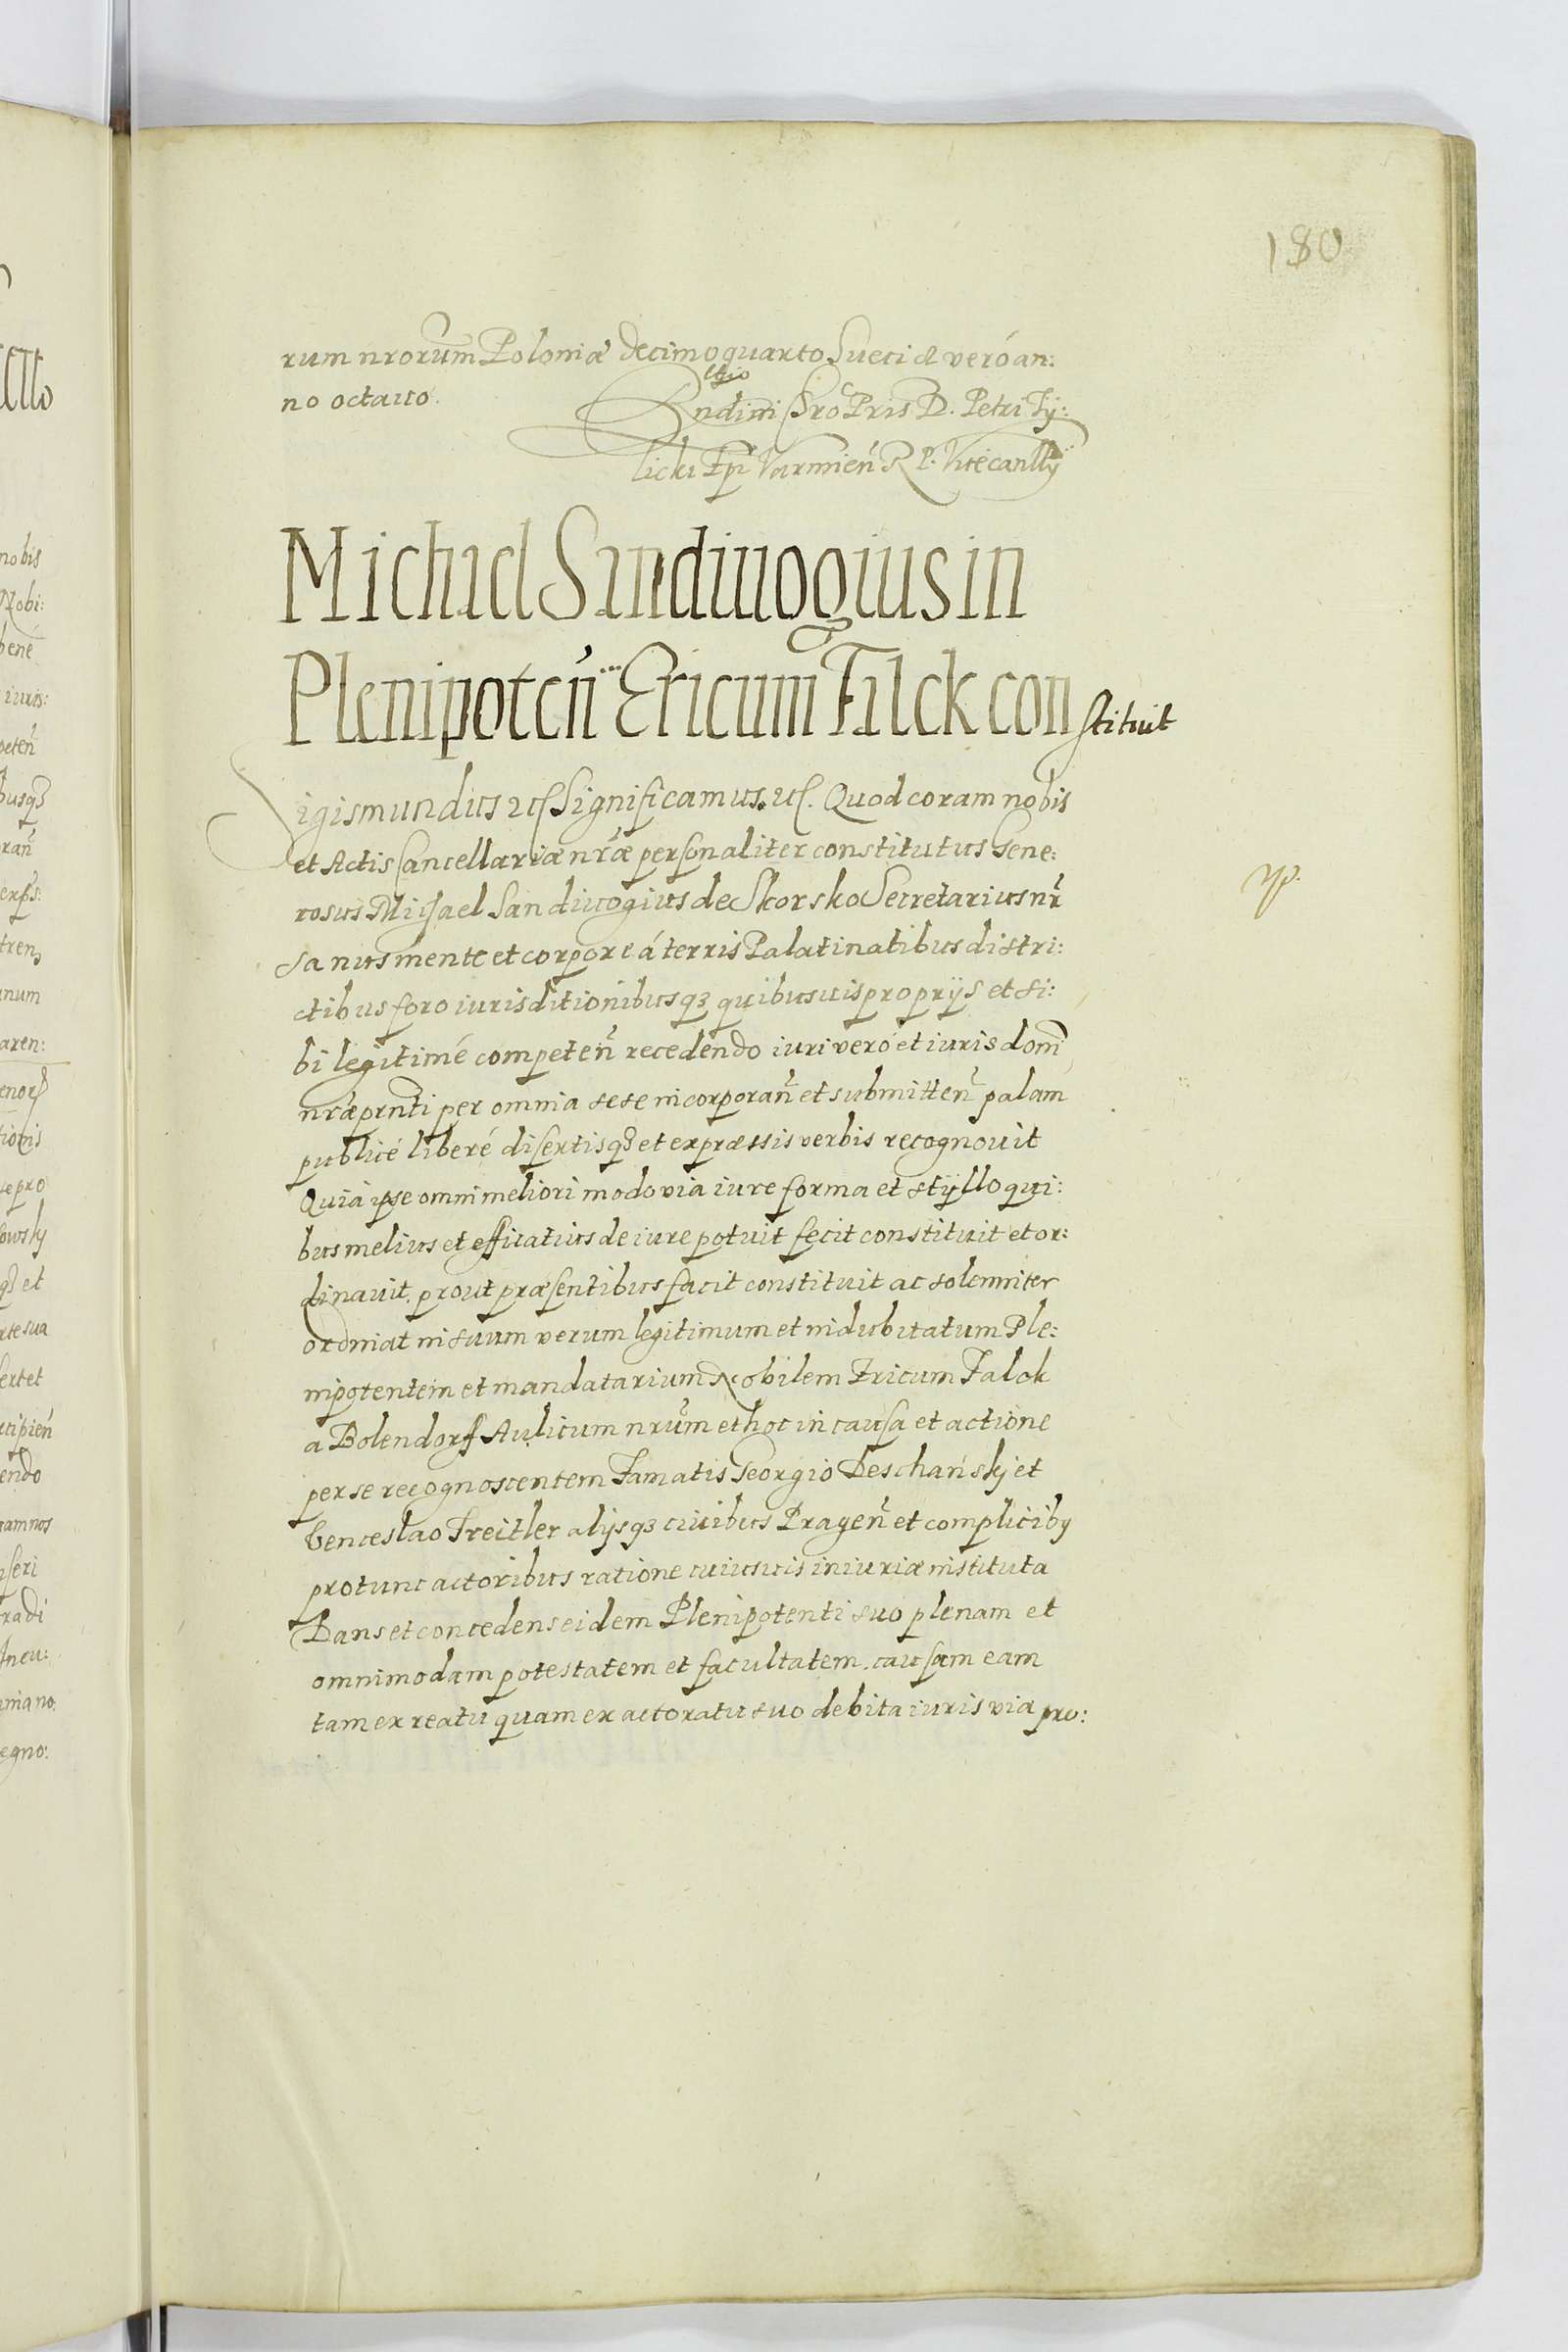 180
rum nrorum Poloniæ decimoquarto Sueciæ veró an:
no octauo.
Rndimi Xro Pris D. Petri Ty:
licki Epi Varmien̄ R. P. Vicecanllrÿ
Michael Sandiuogius in
Plenipoten̄ Ericum Falck con
stituit
Sigismundus Significamus. Quod coram nobis
et Actis Cancellariæ nræ personaliter constitutus Gene:
rosus Michael Sandiuogius de Skorsko Secretarius nr
sanus mente et corpore á terris Palatinatibus distri:
ctibus foro iurisditionibusqz quibusuis proprijs et si:
bi legitimé competen̄ recedendo iuri veró et iuris dom̄
nræ prnti per omnia sese incorporan̄ et submitten̄ palam
publicé liberé disertisqz et expræssis verbis recognouit
Quia ipse omni meliori modo via iure forma et stÿllo qui:
bus melius et efficatius de iure potuit fecit constituit et or:
dinauit. prout præsentibus facit constituit ac solemniter
ordinat in suum verum legitimum et indubitatum Ple:
nipotentem et mandatarium Nobilem Ericum Falck
a Bolendorf Aulicum nrum et hoc in causa et actione
per se recognoscentem Famatis Georgio Deschański et
Venceslao Treitler alijsqz ciuibus Pragen̄ et complicibȝ
pro tunc actoribus ratione cuiusuis iniuriæ instituta
Dans et concedens eidem Plenipotenti suo plenam et
omnimodam potestatem et facultatem. causam eam
tam ex reatu quam ex actoratu suo debita iuris via pro:
nobis
Nobi:
bené
iuris:
peten̄
busqz
ran̄
tren
num
aren:
se pro
owsky
qz et
rte sua
ertet
cipien̄
endo
nam nos
iseri
radi
mano.
egno: